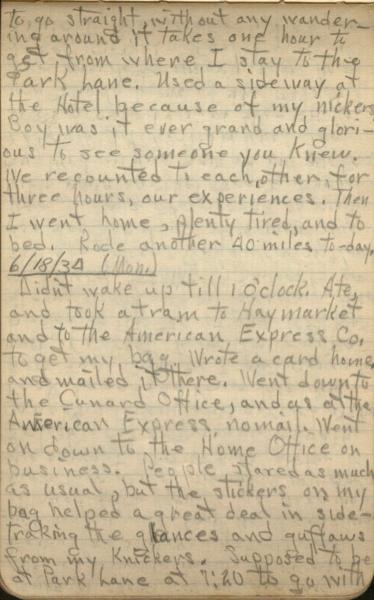 to go straight, without any wander-
ing around it takes one hour to
get from where I stay to the
Park Lane. Used a sideway at
the Hotel because of my nickers
Boy was it ever grand and glori-
ous to see someone you knew.
We recounted to each other, for
three hours, our experiences. Then
I went home, plenty tired, and to
bed. Rode another 40 miles to-day.
6/18/34 (Mon.)
Didn't wake up till 1 o'clock. Ate,
and took a tram to Haymarket
and to the American Express Co.
to get my bag. Wrote a card home,
and mailed it there. Went down to
the Cunard Office, and as at the
American Express no mail. Went
on down to the Home Office on
business. People stared as much
as usual, but the stickers on my
bag helped a great deal in side-
traking the glances and guffaws
from my Knickers. Supposed to be
at Park Lane at 7:20 to go with